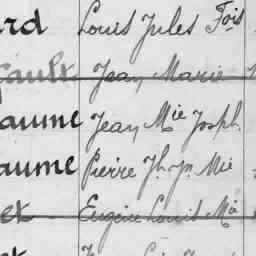 ard Louis Jules Fois
fault Jean Marie
aume Jean Mie Joseph
aume Pierre Jh Jn Mie
et Eugène Louis Mie